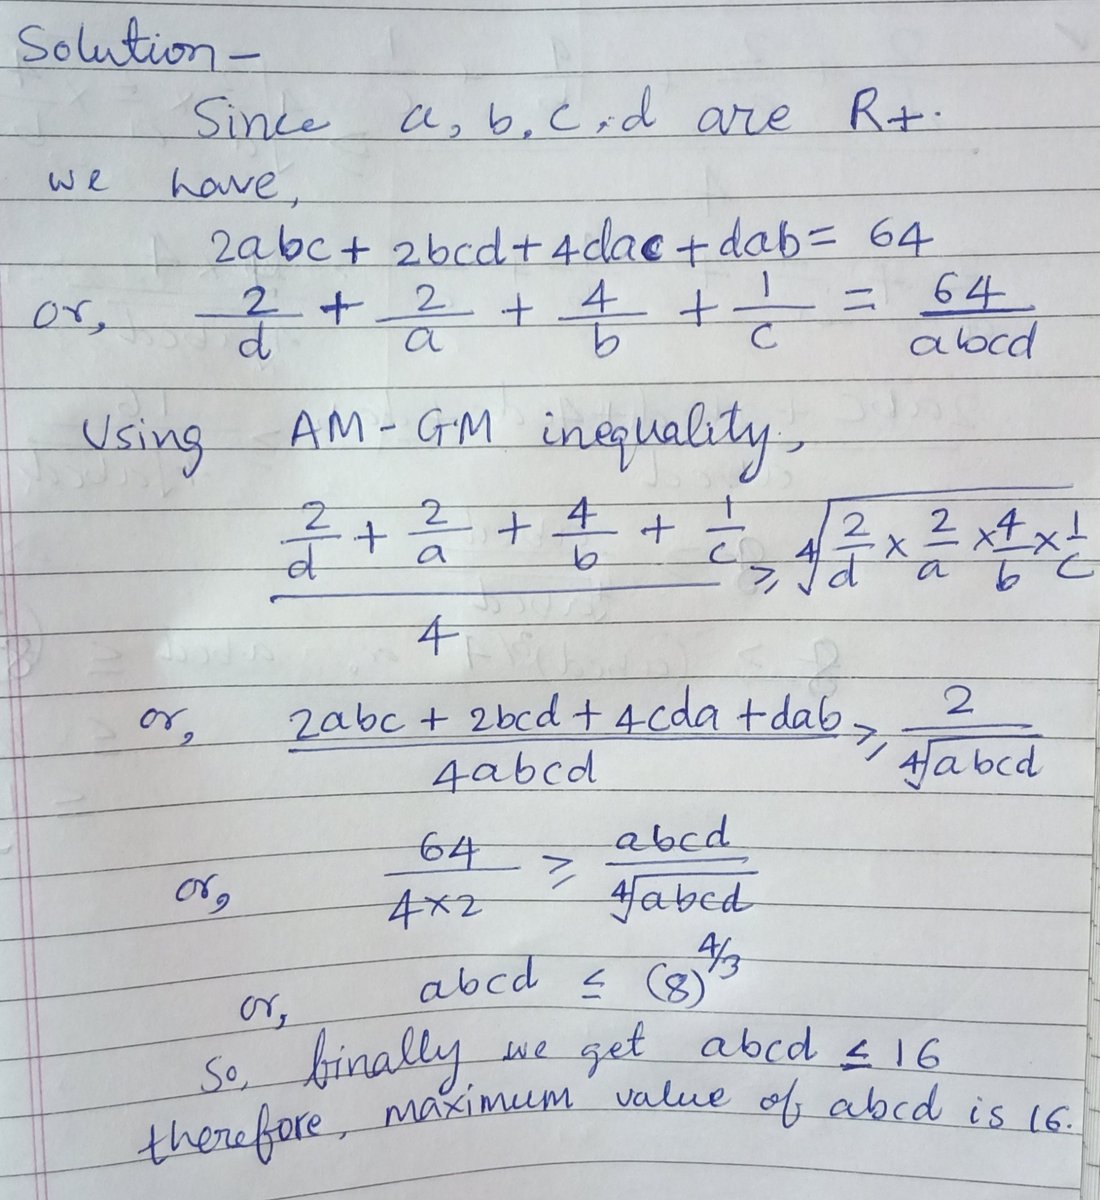 Solution –
Since a, b, c, d are R+.
we have,
2abc + 2bcd + 4dac + dab = 64
or, 2/d + 2/a + 4/b + 1/c = 64/abcd
Using AM - G.M inequality,
(2/d + 2/a + 4/b + 1/c)/4 ≥ ∜(2/d × 2/a × 4/b × 1/c)
or, (2abc + 2bcd + 4cda + dab)/4abcd ≥ 2/∜abcd
or, 64/(4×2) ≥ abcd/∜abcd
or, abcd ≤ (8)^4/3
So, finally we get abcd ≤ 16
therefore, maximum value of abcd is 16.